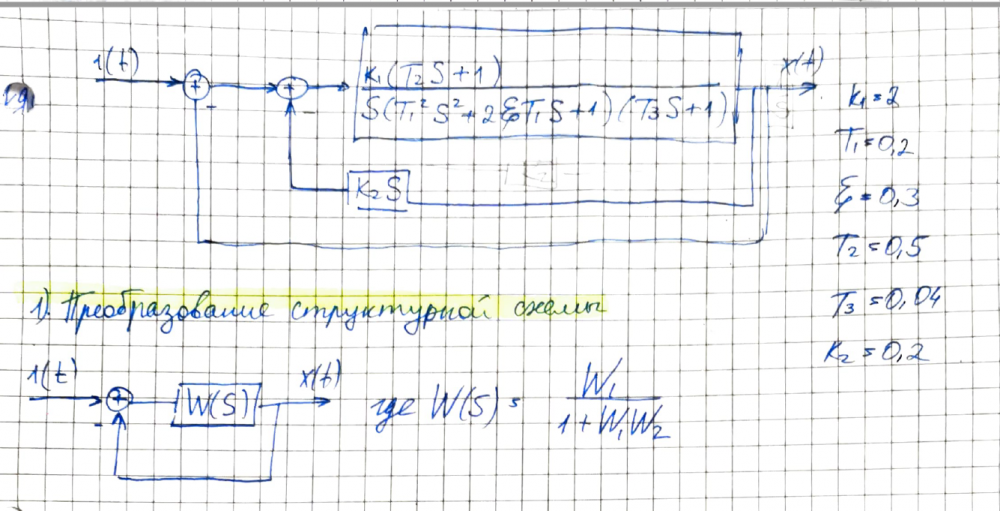 1(t)
x(t)
K₁(T₂S+1)
S(T₁²S²+2ξT₁S+1)(T₃S+1)
K₂S
K₁=2
T₁=0,2
ξ=0,3
T₂=0,5
T₃=0,04
K₂=0,2
1). Преобразование структурной схемы
1(t)
x(t)
W(S)
где W(S)= W₁
1+W₁W₂